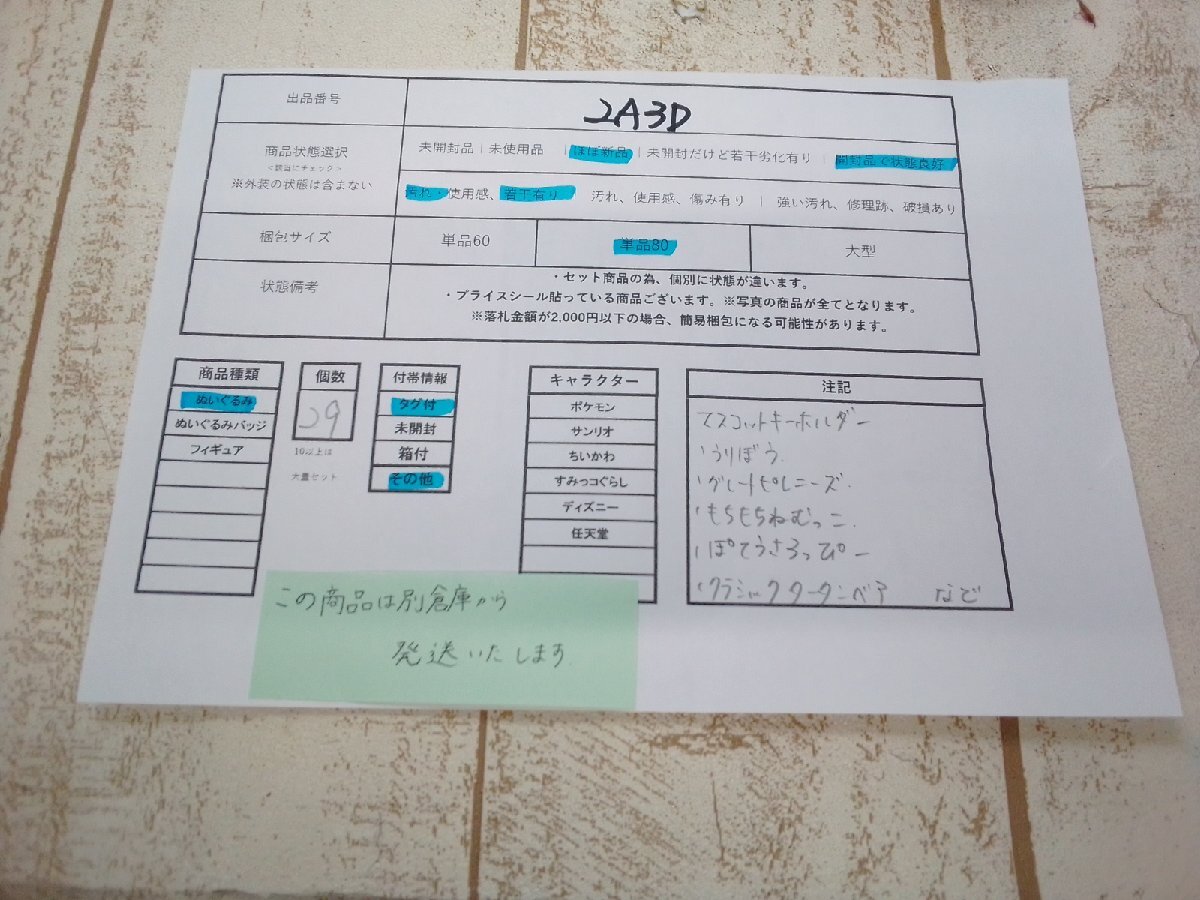 出品番号
2A3D
商品状態選択
<該当にチェック>
※外装の状態は含まない
未開封品 | 未使用品 | ほぼ新品 | 未開封だけど若干劣化有り | 開封品で状態良好
汚れ・使用感、若干有り 汚れ、使用感、傷み有り | 強い汚れ、修理跡、破損あり
梱包サイズ
単品60
単品80
大型
状態備考
・セット商品の為、個別に状態が違います。
・プライスシール貼っている商品ございます。※写真の商品が全てとなります。
※落札金額が2,000円以下の場合、簡易梱包になる可能性があります。
商品種類
ぬいぐるみ
ぬいぐるみバッジ
フィギュア
個数
29
10以上は
大量セット
付帯情報
タグ付
未開封
箱付
その他
キャラクター
ポケモン
サンリオ
ちいかわ
すみっコぐらし
ディズニー
任天堂
注記
マスコットキーホルダー
・うりぼう.
・グレートピレニーズ.
・もちもちねむっこ.
・ぽてうさろっぴー
・クラシックタータンベア など
この商品は別倉庫から
発送いたします.